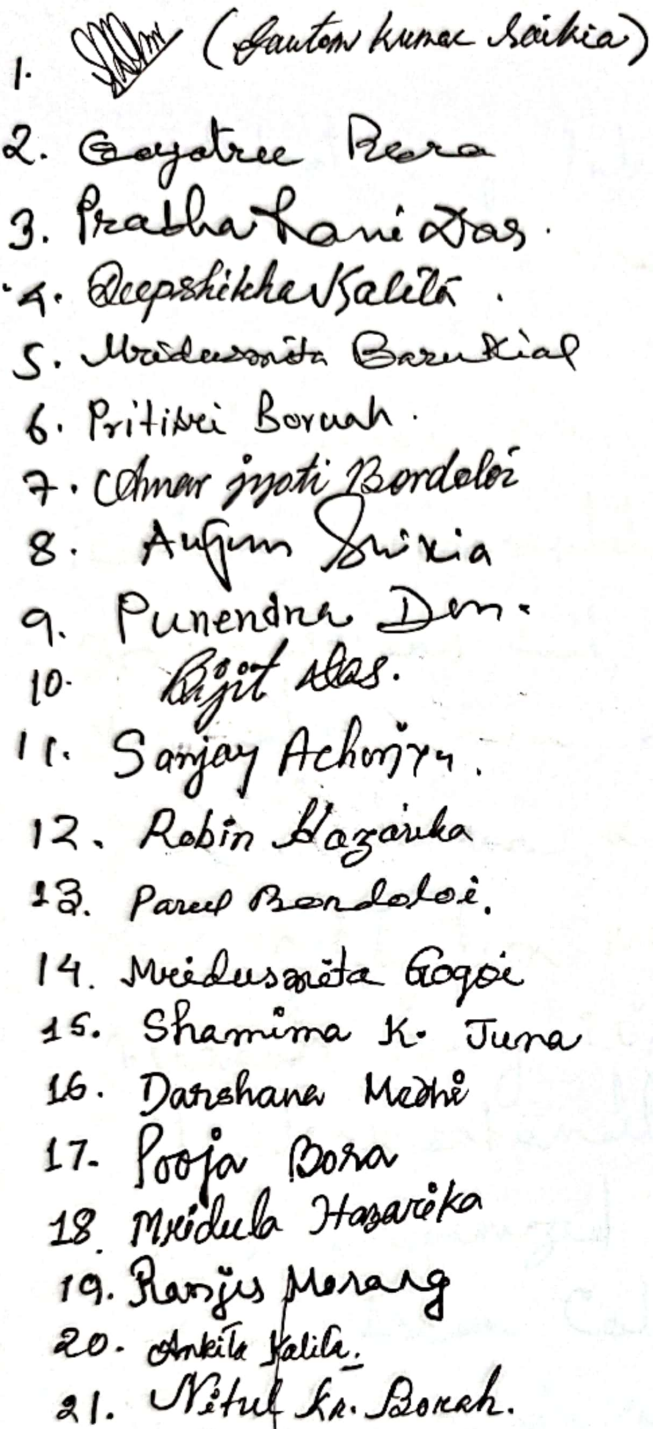 1. (Gautom Kumar Saikia)
2. Gayatree Bora
3. Prabha Rani Das.
4. Deepshikha Kalita.
5. Mridusmita Barukial
6. Pritisri Boruah.
7. Amar jyoti Bordoloi
8. Saikia
9. Punendra
10. Bijit Das.
11. Sanjay Acharjya.
12. Robin Hazarika
13. Parul Bordoloi.
14. Mridusmita Gogoi
15. Shamima K. Juna
16. Darshana Medhi
17. Pooja Bora
18. Mridula Hazarika
19. Morang
20. Ankita Kalita.
21. Nitul Kr. Borah.